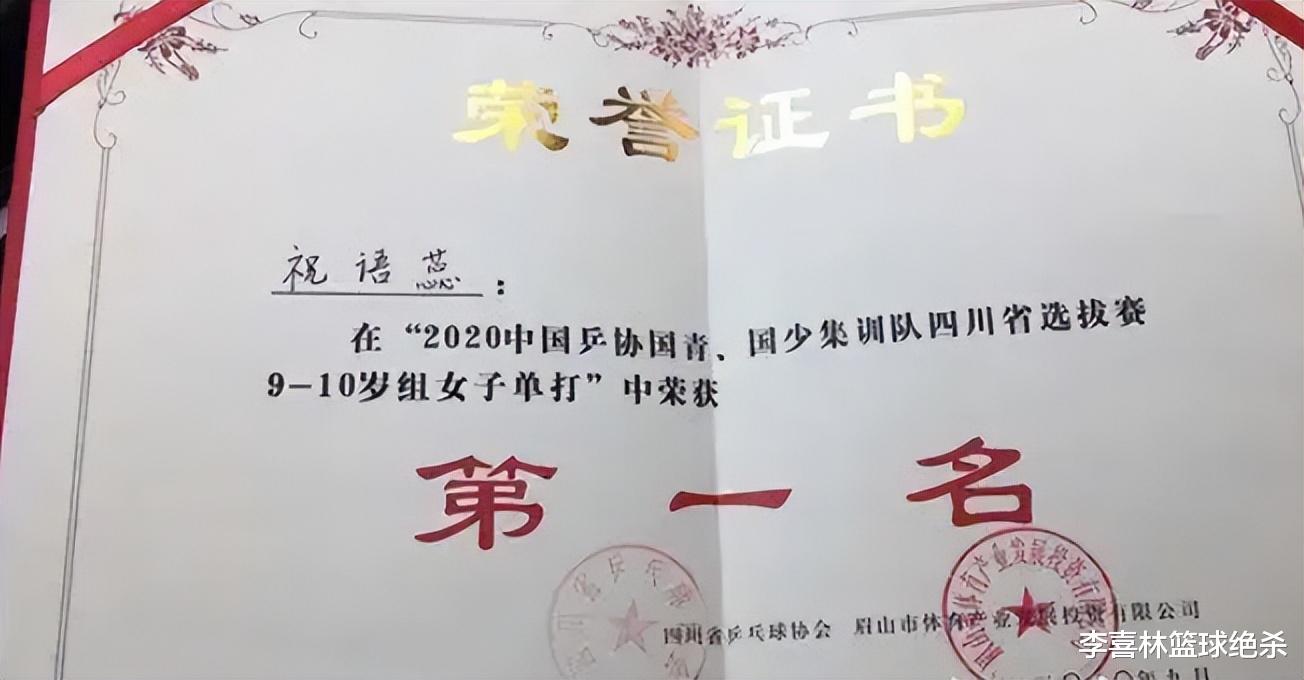 荣誉证书
祝语蕊：
在“2020中国乒协国青、国少集训队四川省选拔赛
9-10岁组女子单打”中荣获
第一名
四川省乒乓球协会 眉山市体育产业发展投资有限公司
李喜林篮球绝杀